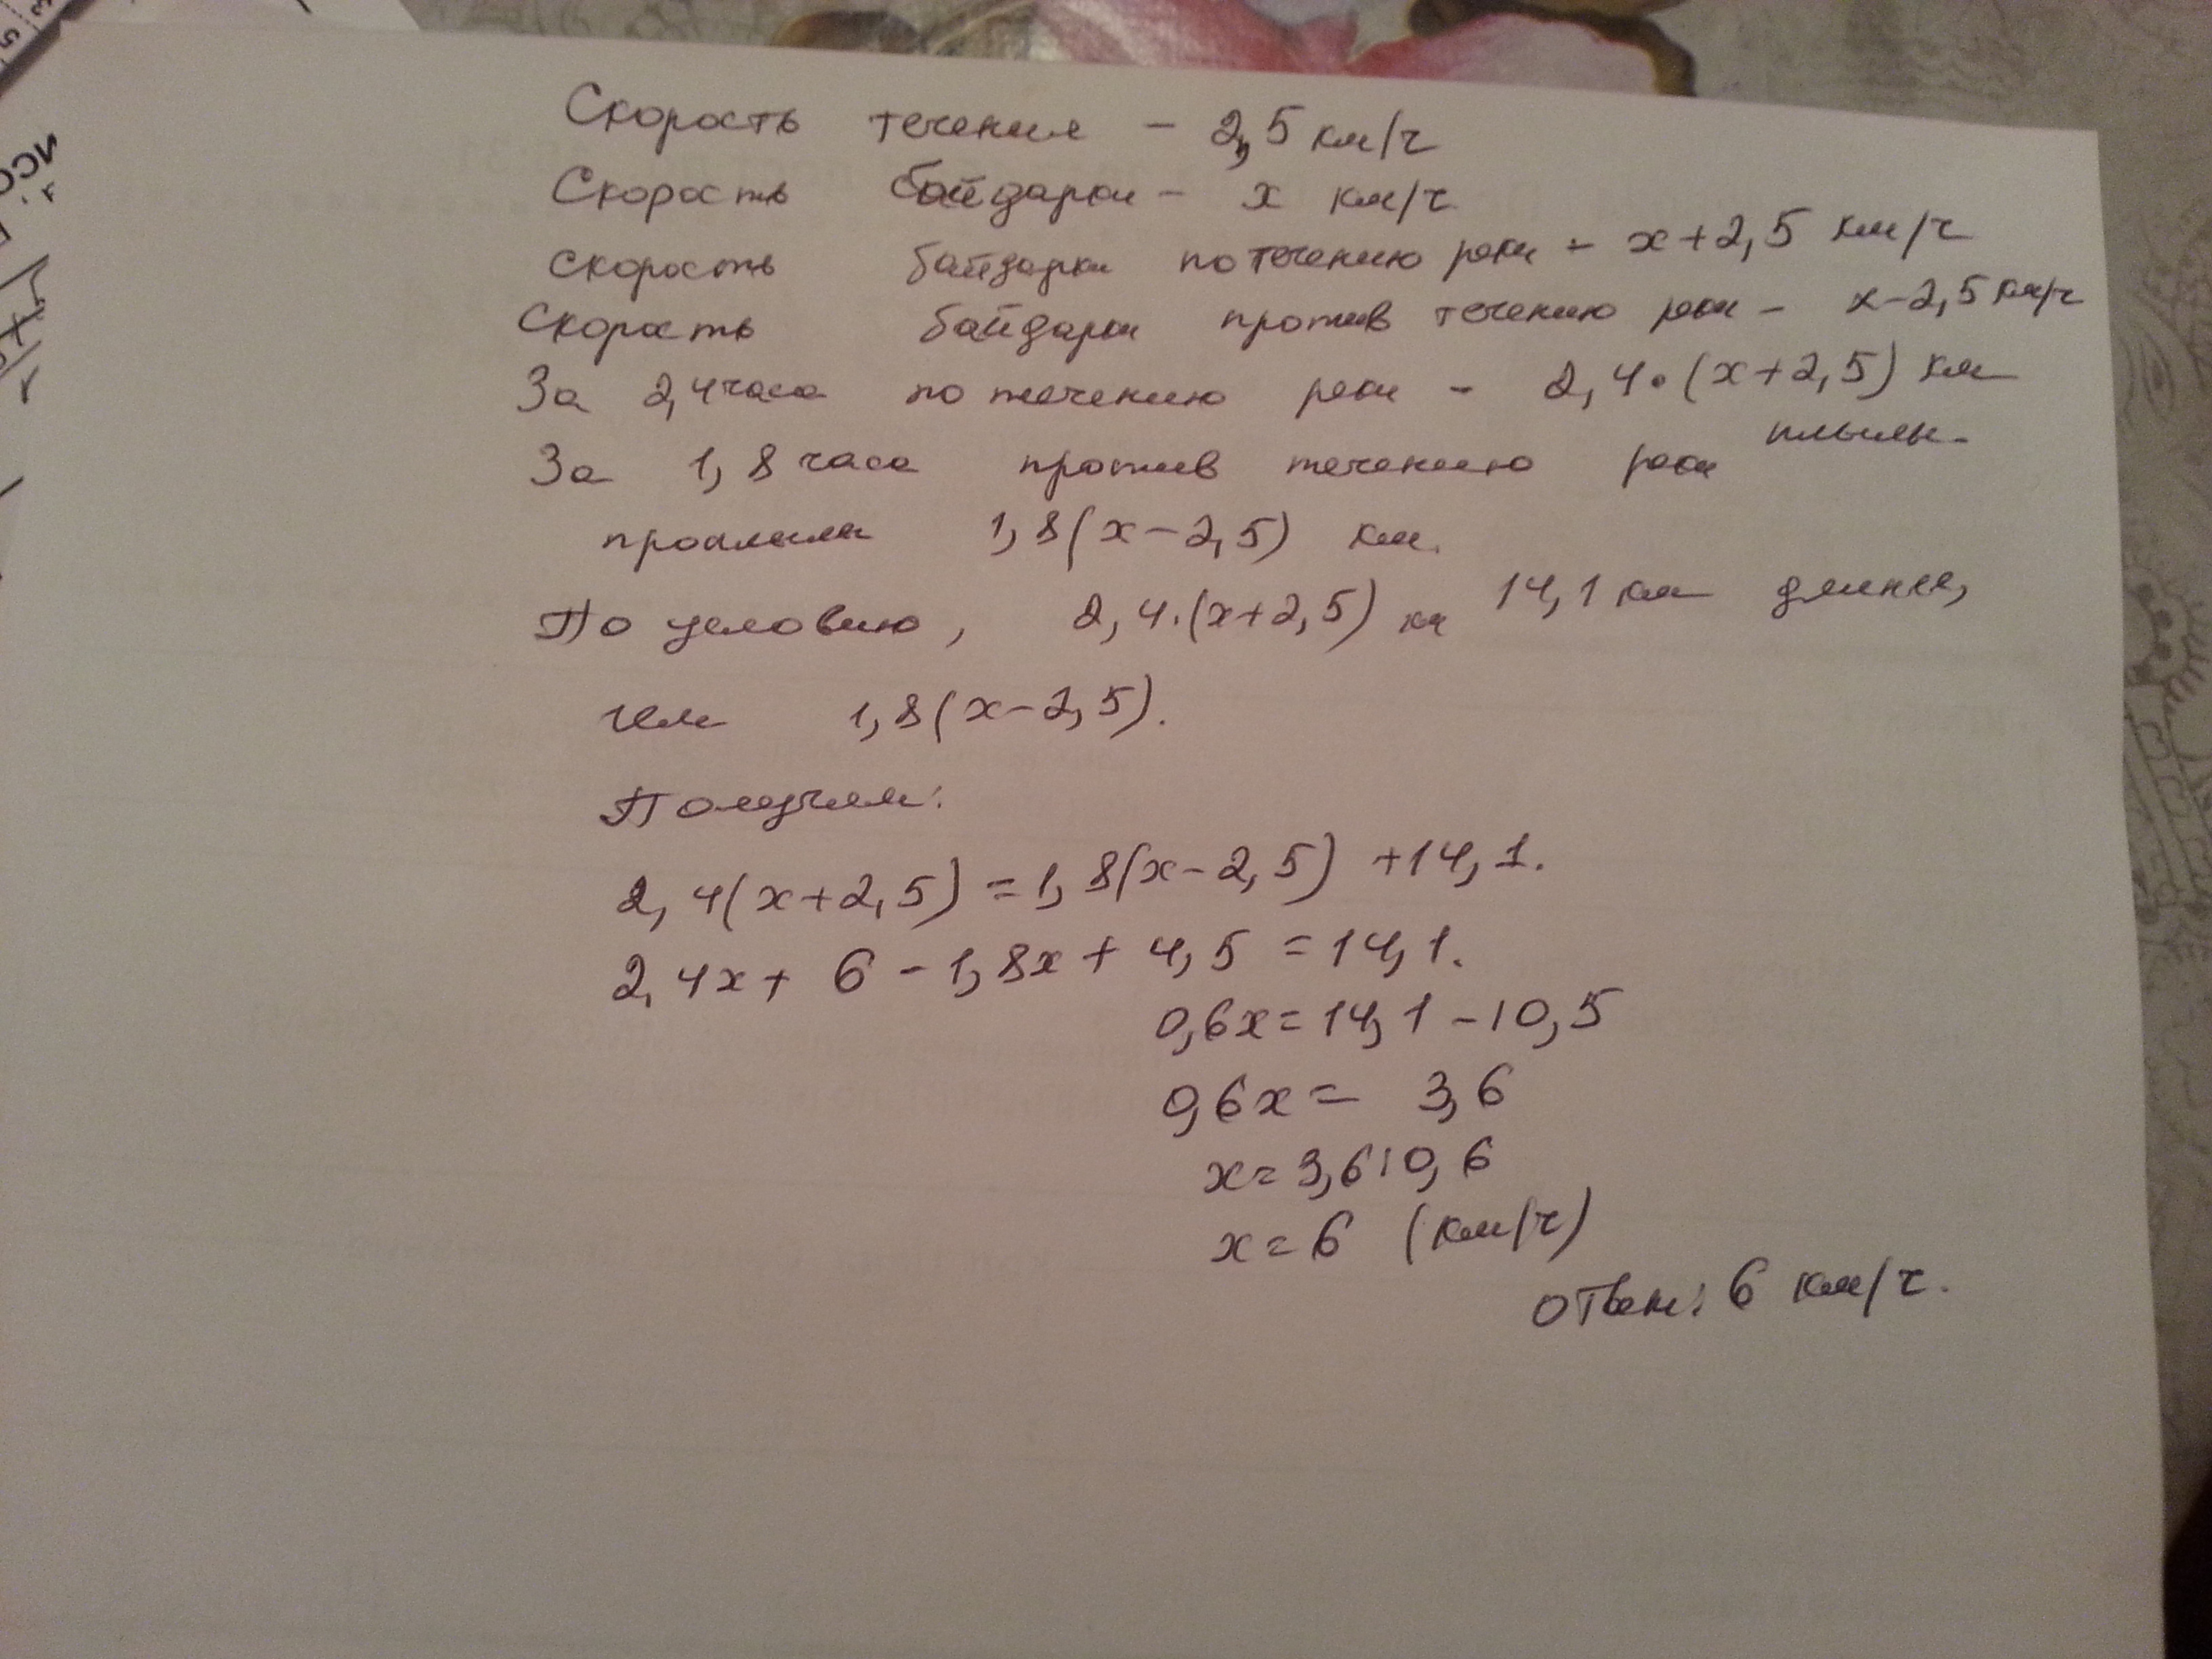 Скорость течения - 2,5 км/ч
Скорость байдарки - x км/ч
скорость байдарки по течению реки - x+2,5 км/ч
Скорость байдарки против течению реки - x-2,5 км/ч
За 2,4 часа по течению реки - 2,4·(x+2,5) км
плыли.
За 1,8 часа против течению реки
проплыли 1,8(x-2,5) км.
По условию, 2,4·(x+2,5) на 14,1 км длиннее,
чем 1,8(x-2,5).
Получим:
2,4(x+2,5)=1,8(x-2,5)+14,1.
2,4x+6-1,8x+4,5=14,1.
0,6x=14,1-10,5
0,6x=3,6
x=3,6:0,6
x=6 (км/ч)
Ответ: 6 км/ч.